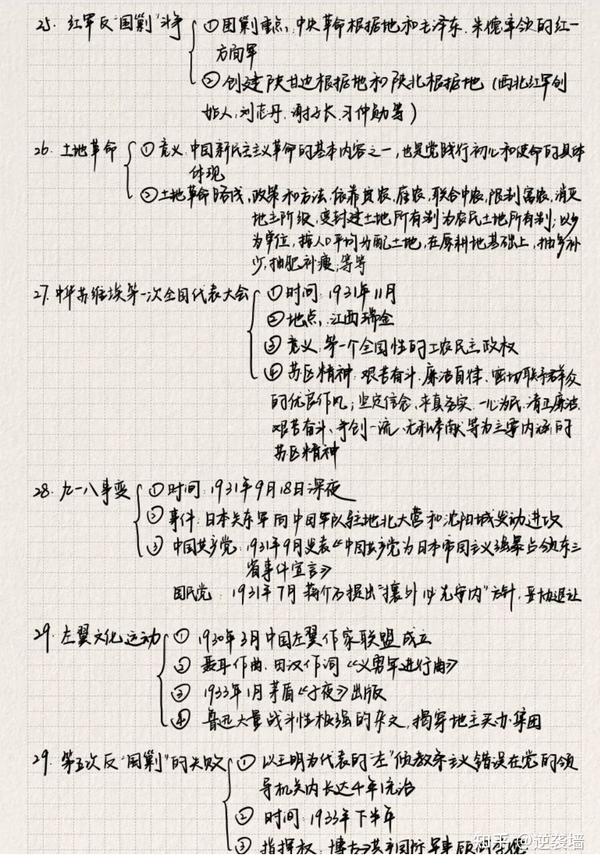 25. 红军反"围剿"斗争 ①围剿重点, 中央革命根据地和毛泽东、朱德率领的红一
方面军
②创建陕甘边根据地和陕北根据地 (西北红军创
始人, 刘志丹、谢子长、习仲勋等)
26. 土地革命 ①意义, 中国新民主主义革命的基本内容之一, 也是党践行初心和使命的具体
体现
②土地革命路线, 政策和方法, 依靠贫农、雇农, 联合中农, 限制富农, 消灭
地主阶级, 变封建土地所有制为农民土地所有制; 以乡
为单位, 按人口平均分配土地, 在原耕地基础上, 抽多补
少, 抽肥补瘦; 等等
27. 中华苏维埃第一次全国代表大会 ①时间: 1931年11月
②地点, 江西瑞金
③意义, 第一个全国性的工农民主政权
④苏区精神, 艰苦奋斗、廉洁自律、密切联系群众
的优良作风; 坚定信念、求真务实、一心为民、清正廉洁、
艰苦奋斗、争创一流、无私奉献等为主要内涵的
苏区精神
28. 九一八事变 ①时间: 1931年9月18日深夜
②事件: 日本关东军向中国军队驻地北大营和沈阳城发动进攻
③中国共产党: 1931年9月发表《中国共产党为日本帝国主义强暴占领东三
省事件宣言》
国民党: 1931年7月蒋介石提出"攘外必先安内"方针, 妥协退让
29. 左翼文化运动 ① 1930年3月中国左翼作家联盟成立
② 聂耳作曲、田汉作词《义勇军进行曲》
③ 1933年1月茅盾《子夜》出版
④ 鲁迅大量战斗性极强的杂文, 揭穿地主买办集团
29. 第五次反"围剿"的失败 ① 以王明为代表的"左"倾教条主义错误在党的领
导机关内长达4年统治
② 时间: 1933年下半年
③ 指挥权: 博古→共产国际军事顾问李德
知乎 @逆袭墙